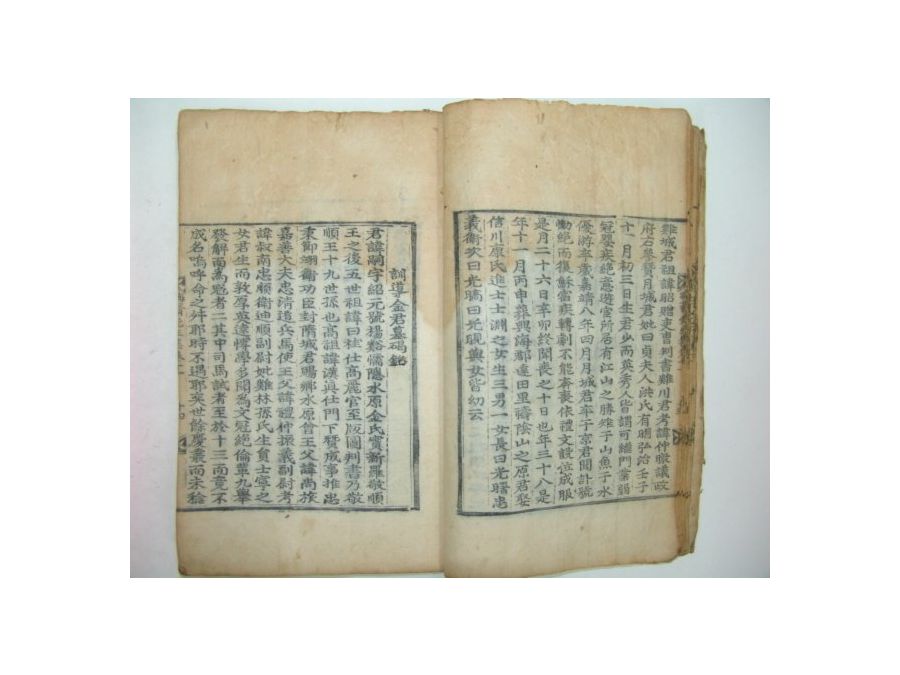 雞城君祖諱昭贈吏曹判書雞川君考諱仲暾議政
府右參贊月城君妣曰貞夫人洪氏有明弘治壬子
十一月初三日生君少而英秀人皆謂可繼門業弱
冠嬰疾絶意遊宦所居有江山之勝雉子山魚子水
優游卒歲嘉靖八年四月月城君卒于京君聞訃號
慟絶而復穌當疾轉劇不能奔喪依禮文設位成服
是月二十六日辛卯終聞喪之十日也年三十八是
年十一月丙申葬興海郡達田里禱陰山之原君娶
信川康氏進士士淵之女生三男一女長曰光曙忠
義衛次曰光 曰光 與女皆幼云
訓導金君墓碣銘
君諱 字紹元號楊谿慵隱水原金氏實新羅敬順
王之後五世祖諱曰柱仕高麗官至版圖判書乃敬
順王十九世孫也高祖諱漢眞仕門下贊成事推忠
秉節翊衛功臣封隋城君賜鄉水原曾王父諱尚旅
嘉善大夫忠清道兵馬使王父諱禮仲振義副尉考
諱叔南忠順衛迪順副尉妣雞林孫氏生員士寧之
女君生而敦厚英達愽學多聞爲文冠絶倫輩九舉
發解而爲冠者二其中司馬試者至於十三而竟不
成名嗚呼命之舛耶時不遇耶奕世餘慶 而未稔